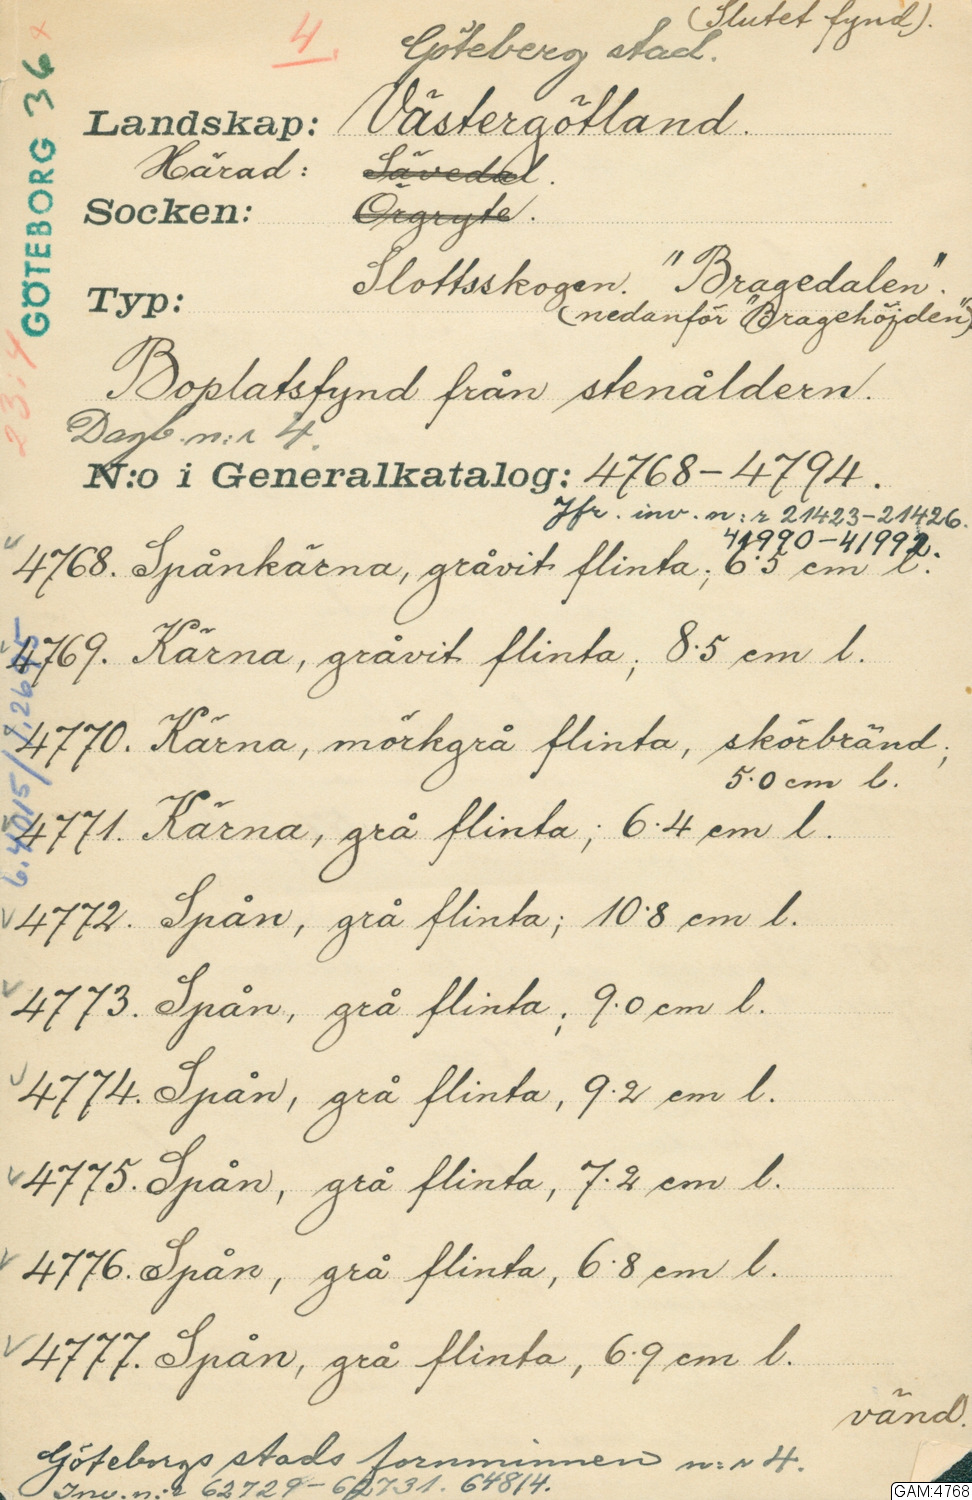 (Slutet fynd).
4.
Göteborg stad.
GÖTEBORG 36 x
Landskap: Västergötland.
Härad: Sävedal.
Socken: Örgryte.
Slottsskogen. "Bragedalen".
Typ:
(nedanför "Bragehöjden")
23:4
Boplatsfynd från stenåldern.
Dagb. n:r 4.
N:o i Generalkatalog: 4768-4794.
Jfr. inv. n:r 21423-21426.
41990-41992.
4768. Spånkärna, gråvit flinta; 6·5 cm l.
4769. Kärna, gråvit flinta; 8·5 cm l.
4770. Kärna, mörkgrå flinta, skörbränd;
5·0 cm l.
4771. Kärna, grå flinta; 6·4 cm l.
4772. Spån, grå flinta; 10·8 cm l.
4773. Spån, grå flinta; 9·0 cm l.
4774. Spån, grå flinta, 9·2 cm l.
4775. Spån, grå flinta, 7·2 cm l.
4776. Spån, grå flinta, 6·8 cm l.
4777. Spån, grå flinta, 6·9 cm l.
vänd.
Göteborgs stads fornminnen n:r 4.
Inv. n:r 62729-62731. 64814.
GAM:4768